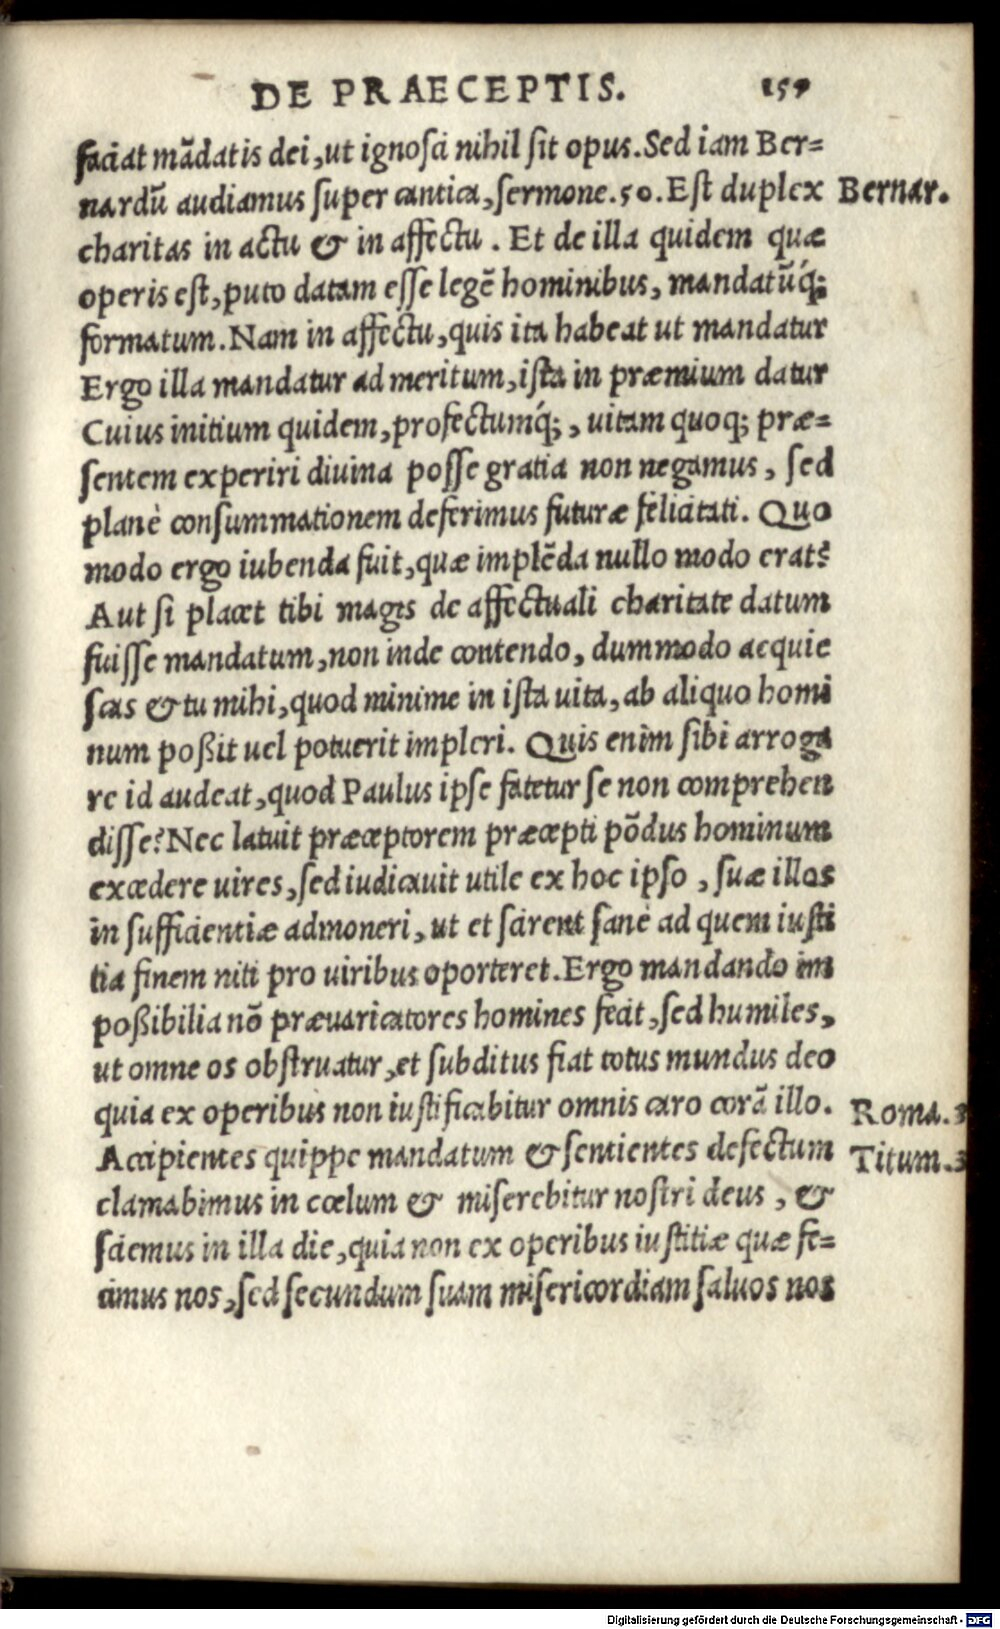 DE PRAECEPTIS. 159
faciat mādatis dei, ut ignosci nihil sit opus. Sed iam Ber=
nardū audiamus super cantica, sermone. 50. Est duplex Bernar.
charitas in actu & in affectu. Et de illa quidem quæ
operis est, puto datam esse legē hominibus, mandatūq́;
formatum. Nam in affectu, quis ita habeat ut mandatur
Ergo illa mandatur ad meritum, ista in præmium datur
Cuius initium quidem, profectumq́;, uitam quoq; præ=
sentem experiri diuina posse gratia non negamus, sed
planè consummationem deferimus futuræ felicitati. Quo
modo ergo iubenda fuit, quæ implēda nullo modo erat?
Aut si placet tibi magis de affectuali charitate datum
fuisse mandatum, non inde contendo, dummodo acquie
scas & tu mihi, quod minime in ista uita, ab aliquo homi
num poßit uel potuerit impleri. Quis enim sibi arroga
re id audeat, quod Paulus ipse fatetur se non comprehen
disse? Nec latuit præceptorem præcepti pōdus hominum
excedere uires, sed iudicauit utile ex hoc ipso, suæ illos
in sufficientiæ admoneri, ut et scirent sanè ad quem iusti
tia finem niti pro uiribus oporteret. Ergo mandando im
poßibilia nō præuaricatores homines fecit, sed humiles,
ut omne os obstruatur, et subditus fiat totus mundus deo
quia ex operibus non iustificabitur omnis caro corā illo. Roma. 3
Accipientes quippe mandatum & sentientes defectum Titum. 3
clamabimus in cœlum & miserebitur nostri deus, &
sciemus in illa die, quia non ex operibus iustitiæ quæ fe=
cimus nos, sed secundum suam misericordiam saluos nos
Digitalisierung gefördert durch die Deutsche Forschungsgemeinschaft - DFG